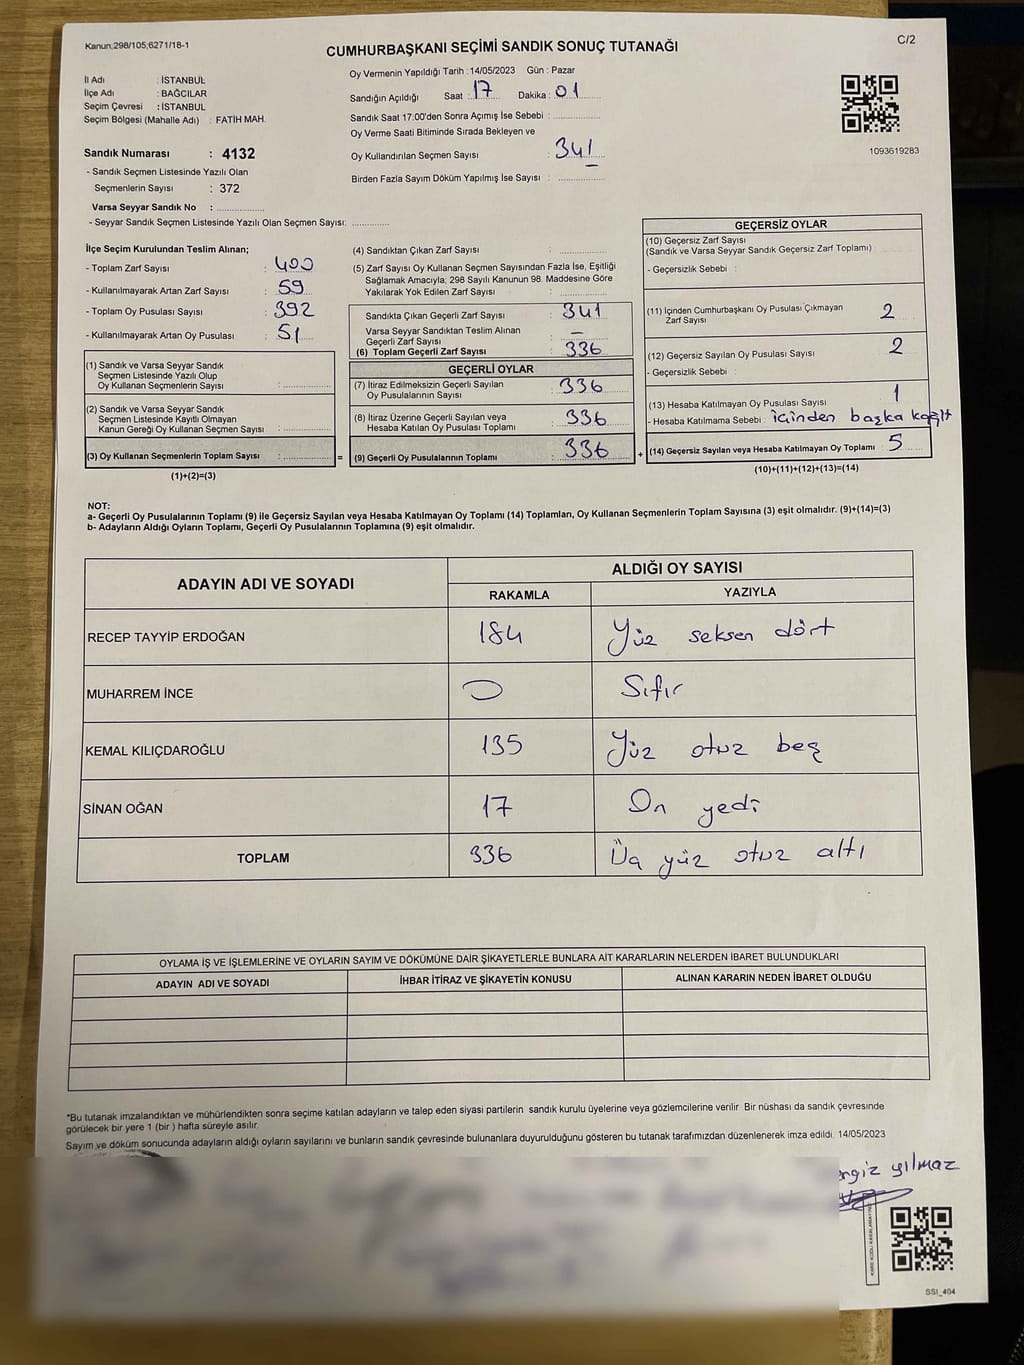 Kanun;298/105;6271/18-1
C/2
CUMHURBAŞKANI SEÇİMİ SANDIK SONUÇ TUTANAĞI
İl Adı : İSTANBUL
İlçe Adı : BAĞCILAR
Seçim Çevresi : İSTANBUL
Seçim Bölgesi (Mahalle Adı) : FATİH MAH.
Sandık Numarası : 4132
- Sandık Seçmen Listesinde Yazılı Olan
Seçmenlerin Sayısı : 372
Varsa Seyyar Sandık No :
- Seyyar Sandık Seçmen Listesinde Yazılı Olan Seçmen Sayısı:
Oy Vermenin Yapıldığı Tarih :14/05/2023 Gün : Pazar
Sandığın Açıldığı Saat : 17 Dakika : 01
Sandık Saat 17:00'den Sonra Açımış İse Sebebi :
Oy Verme Saati Bitiminde Sırada Bekleyen ve
Oy Kullandırılan Seçmen Sayısı : 341
Birden Fazla Sayım Döküm Yapılmış İse Sayısı :
1093619283
İlçe Seçim Kurulundan Teslim Alınan;
- Toplam Zarf Sayısı : 400
- Kullanılmayarak Artan Zarf Sayısı : 59
- Toplam Oy Pusulası Sayısı : 392
- Kullanılmayarak Artan Oy Pusulası : 51
(1) Sandık ve Varsa Seyyar Sandık
Seçmen Listesinde Yazılı Olup
Oy Kullanan Seçmenlerin Sayısı :
(2) Sandık ve Varsa Seyyar Sandık
Seçmen Listesinde Kayıtlı Olmayan
Kanun Gereği Oy Kullanan Seçmen Sayısı :
(3) Oy Kullanan Seçmenlerin Toplam Sayısı :
(1)+(2)=(3)
=
(4) Sandıktan Çıkan Zarf Sayısı :
(5) Zarf Sayısı Oy Kullanan Seçmen Sayısından Fazla İse, Eşitliği
Sağlamak Amacıyla; 298 Sayılı Kanunun 98. Maddesine Göre
Yakılarak Yok Edilen Zarf Sayısı :
Sandıkta Çıkan Geçerli Zarf Sayısı : 341
Varsa Seyyar Sandıktan Teslim Alınan
Geçerli Zarf Sayısı : –
(6) Toplam Geçerli Zarf Sayısı : 336
GEÇERLİ OYLAR
(7) İtiraz Edilmeksizin Geçerli Sayılan
Oy Pusulalarının Sayısı : 336
(8) İtiraz Üzerine Geçerli Sayılan veya
Hesaba Katılan Oy Pusulası Toplamı : 336
(9) Geçerli Oy Pusulalarının Toplamı : 336
+
GEÇERSİZ OYLAR
(10) Geçersiz Zarf Sayısı
(Sandık ve Varsa Seyyar Sandık Geçersiz Zarf Toplamı)
- Geçersizlik Sebebi :
(11) İçinden Cumhurbaşkanı Oy Pusulası Çıkmayan
Zarf Sayısı 2
(12) Geçersiz Sayılan Oy Pusulası Sayısı 2
- Geçersizlik Sebebi :
(13) Hesaba Katılmayan Oy Pusulası Sayısı 1
- Hesaba Katılmama Sebebi : içinden başka kağıt
(14) Geçersiz Sayılan veya Hesaba Katılmayan Oy Toplamı 5
(10)+(11)+(12)+(13)=(14)
NOT:
a- Geçerli Oy Pusulalarının Toplamı (9) ile Geçersiz Sayılan veya Hesaba Katılmayan Oy Toplamı (14) Toplamları, Oy Kullanan Seçmenlerin Toplam Sayısına (3) eşit olmalıdır. (9)+(14)=(3)
b- Adayların Aldığı Oyların Toplamı, Geçerli Oy Pusulalarının Toplamına (9) eşit olmalıdır.
ADAYIN ADI VE SOYADI
ALDIĞI OY SAYISI
RAKAMLA YAZIYLA
RECEP TAYYİP ERDOĞAN 184 Yüz seksen dört
MUHARREM İNCE 0 Sıfır
KEMAL KILIÇDAROĞLU 135 Yüz otuz beş
SİNAN OĞAN 17 On yedi
TOPLAM 336 Üç yüz otuz altı
OYLAMA İŞ VE İŞLEMLERİNE VE OYLARIN SAYIM VE DÖKÜMÜNE DAİR ŞİKAYETLERLE BUNLARA AİT KARARLARIN NELERDEN İBARET BULUNDUKLARI
ADAYIN ADI VE SOYADI İHBAR İTİRAZ VE ŞİKAYETİN KONUSU ALINAN KARARIN NEDEN İBARET OLDUĞU
*Bu tutanak imzalandıktan ve mühürlendikten sonra seçime katılan adayların ve talep eden siyasi partilerin sandık kurulu üyelerine veya gözlemcilerine verilir. Bir nüshası da sandık çevresinde
görülecek bir yere 1 (bir ) hafta süreyle asılır.
Sayım ve döküm sonucunda adayların aldığı oyların sayılarını ve bunların sandık çevresinde bulunanlara duyurulduğunu gösteren bu tutanak tarafımızdan düzenlenerek imza edildi. 14/05/2023
engiz yılmaz
SSI_404